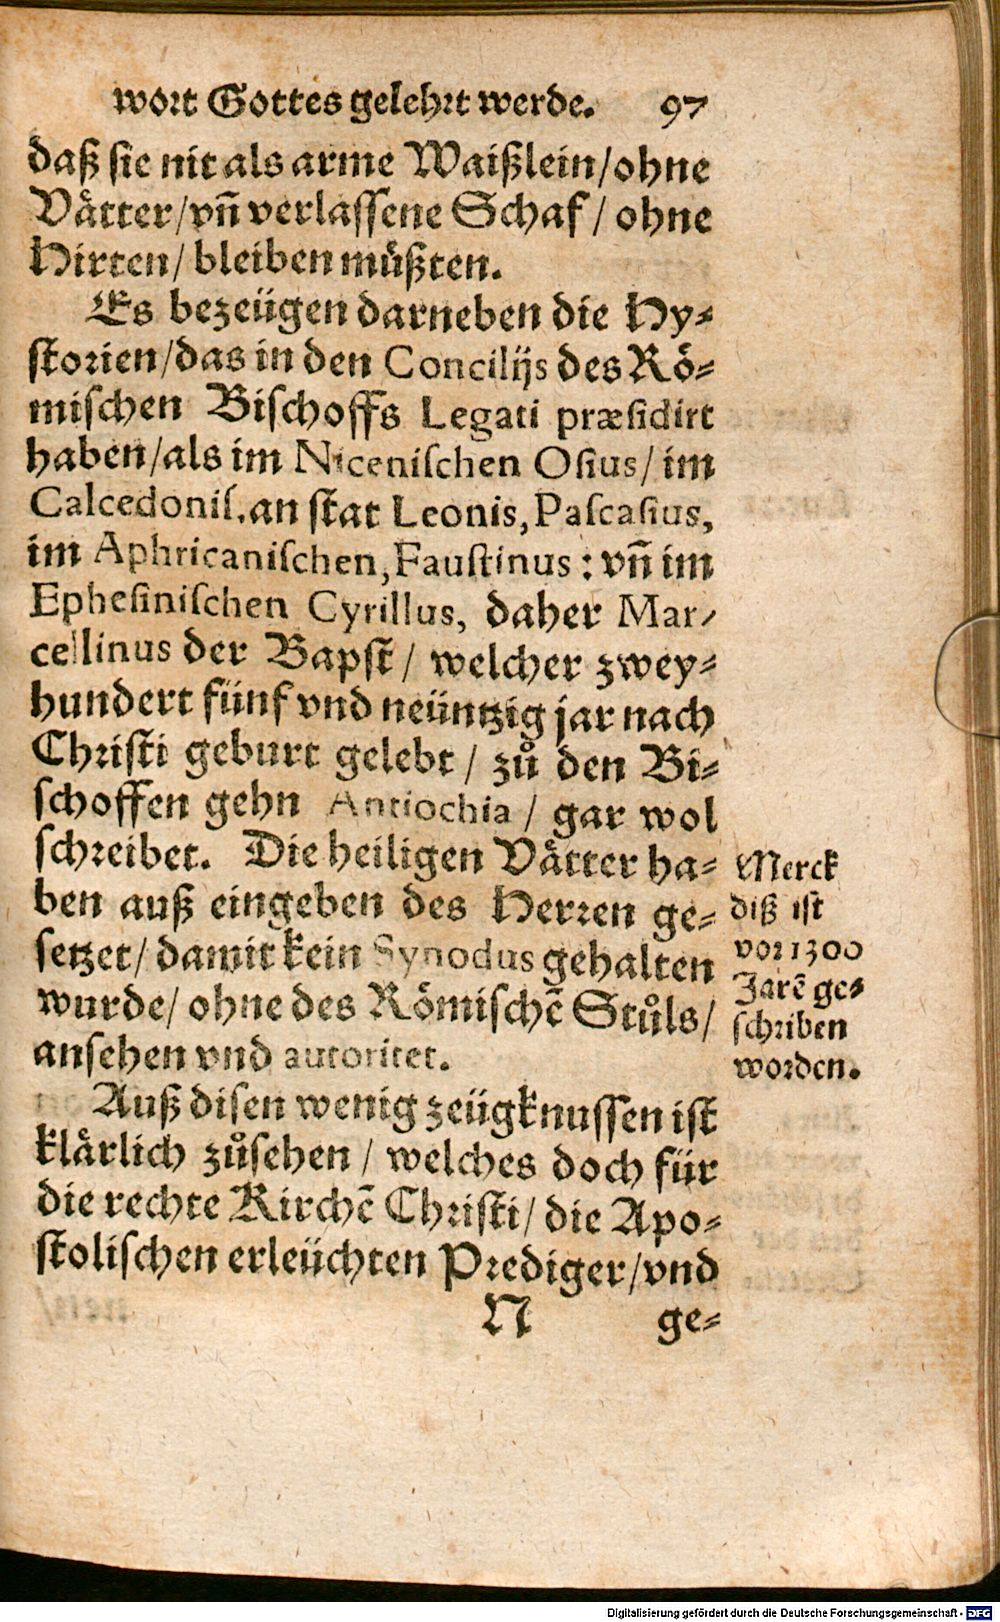 wort Gottes gelehrt werde. 97
daß sie nit als arme Waißlein/ohne
Vaͤtter/vñ verlassene Schaf / ohne
Hirten/ bleiben muͤßten.
Es bezeügen darneben die Hy⸗
storien/das in den Concilijs des Roͤ⸗
mischen Bischoffs Legati præsidirt
haben/als im Nicenischen Osius/ im
Calcedonis.an stat Leonis, Pascasius,
im Aphricanischen, Faustinus : vñ im
Ephesinischen Cyrillus, daher Mar⸗
cellinus der Bapst / welcher zwey⸗
hundert fünf vnd neüntzig jar nach
Christi geburt gelebt / zuͦ den Bi⸗
schoffen gehn Antiochia / gar wol
schreibet. Die heiligen Vaͤtter ha⸗
ben auß eingeben des Herren ge⸗
setzet/ damit kein Synodus gehalten
wurde/ ohne des Roͤmischẽ Stuͦls/
ansehen vnd autoritet.
Auß disen wenig zeügknussen ist
klaͤrlich zuͦsehen / welches doch für
die rechte Kirchẽ Christi/ die Apo⸗
stolischen erleüchten Prediger/vnd
N ge⸗
Merck
diß ist
vor 1300
Jarẽ ge⸗
schriben
worden.
Digitalisierung gefördert durch die Deutsche Forschungsgemeinschaft - DFG